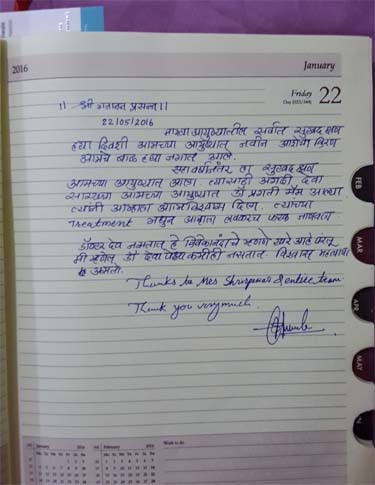 2016
January
Friday 22
Day (022/344)
|| श्री गजानन प्रसन्न ||
22/05/2016
माझ्या आयुष्यातील सर्वात सुखद क्षण
ह्या दिवशी आमच्या आयुष्यात नवीन आशेचा किरण
आमचे बाळ ह्या जगात आले.
सात वर्षानंतर हा सुखद क्षण
आमच्या आयुष्यात आला. त्यासाठी अगदी देवा
सारख्या आमच्या आयुष्यात डॉ प्रगती मॅम आल्या
त्यांनी आम्हाला आत्मविश्वास दिला. त्यांच्या
Treatment मधून आम्हाला लवकरच फरक जाणवला.
डॉक्टर देव नसतात हे विवेकानंदाचे म्हणणे खरे आहे परंतु
मी म्हणेल डॉ देवा पेक्षा कमीही नसतात. विश्वास महत्वाचा
असतो.
Thanks to Mrs & entire team.
Thank you very much.
FEB
MAR
APR
MAY
January 2016
February 2016
Work to do: